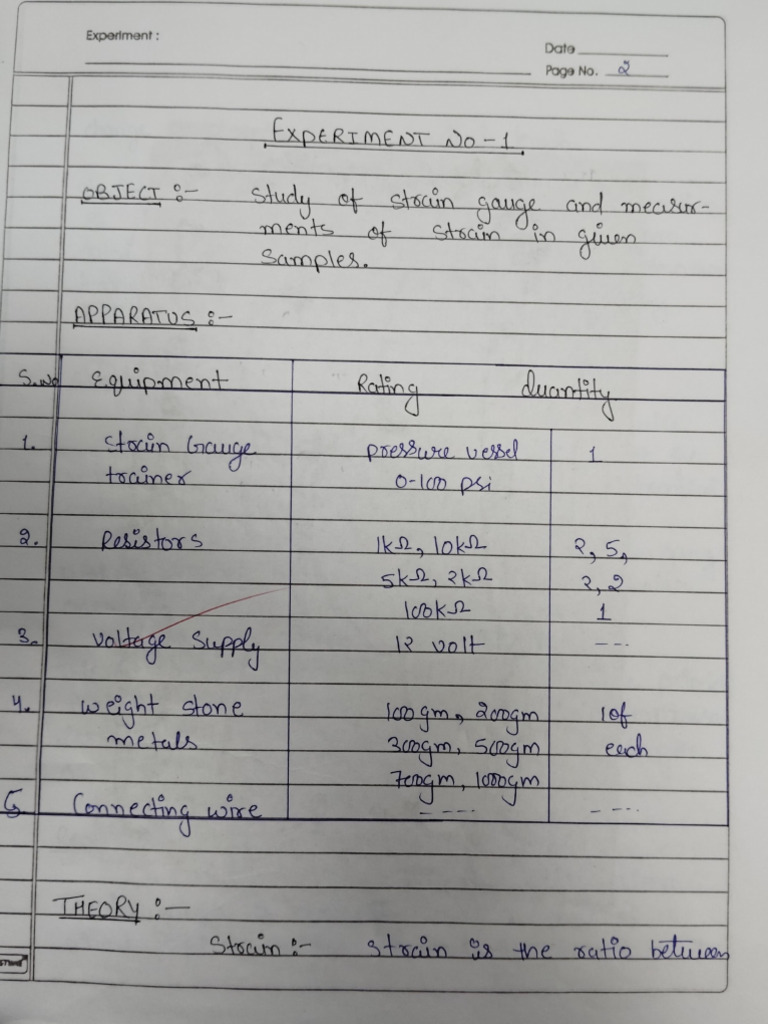 Experiment :
Date
Page No. 2
EXPERIMENT NO-1.
OBJECT :- Study of strain gauge and measur-
ments of strain in given
samples.
APPARATUS :-
S.No Equipment Rating Quantity
1. Strain Gauge pressure vessel 1
trainer 0-100 psi
2. Resistors 1kΩ, 10kΩ 2, 5,
5kΩ, 2kΩ 2, 2
100kΩ 1
3. Voltage Supply 12 volt ---
4. weight stone 100gm, 200gm 1 of
metals 300gm, 500gm each
700gm, 1000gm
5 Connecting wire ---- ----
THEORY :-
Strain :- Strain is the ratio between